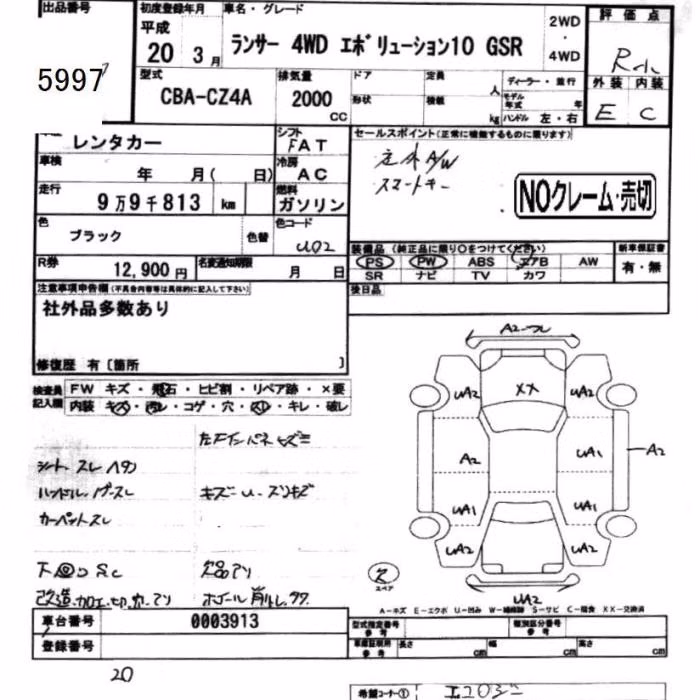 出品番号
5997
初度登録年月
平成
20 3月
車名・グレード
ランサー 4WD エボリューション10 GSR
2WD
・
4WD
評価点
外装 内装
E C
型式
CBA-CZ4A
排気量
2000
CC
ドア
形状
定員
人
積載
kg
ディーラー・並行
モデル年式 年
ハンドル 左・右
レンタカー
シフト
FAT
車検
年 月( 日)
冷房
AC
走行
9万9千813 km
燃料
ガソリン
色
ブラック
色替
色コード
U02
R券
12,900円
名変通知期限
月 日
セールスポイント(正常に機能するものに限ります)
スマートキー
NOクレーム・売切
装備品(純正品に限り○をつけてください)
PS PW ABS エアB AW
SR ナビ TV カワ
新車保証書
有・無
後日品
注意事項申告欄(不具合内容等は具体的に記入して下さい)
社外品多数あり
修復歴 有〔箇所 〕
検査員記入欄
FW キズ・飛石・ヒビ割・リペア跡・×要
内装 キズ・汚レ・コゲ・穴・スレ・キレ・破レ
シート スレ
カーペットスレ
A2
UA2 XX UA2
A2 UA1 A2
UA1 UA1
UA2 UA2
UA2
スペア
A-キズ E-エクボ U-凹み W-補修跡 S-サビ C-腐食 XX-交換済
車台番号 0003913
登録番号
型式指定番号 参考
類別区分番号 参考
車庫証明用 参考
長さ cm 幅 cm 高さ cm
20
希望コーナー①